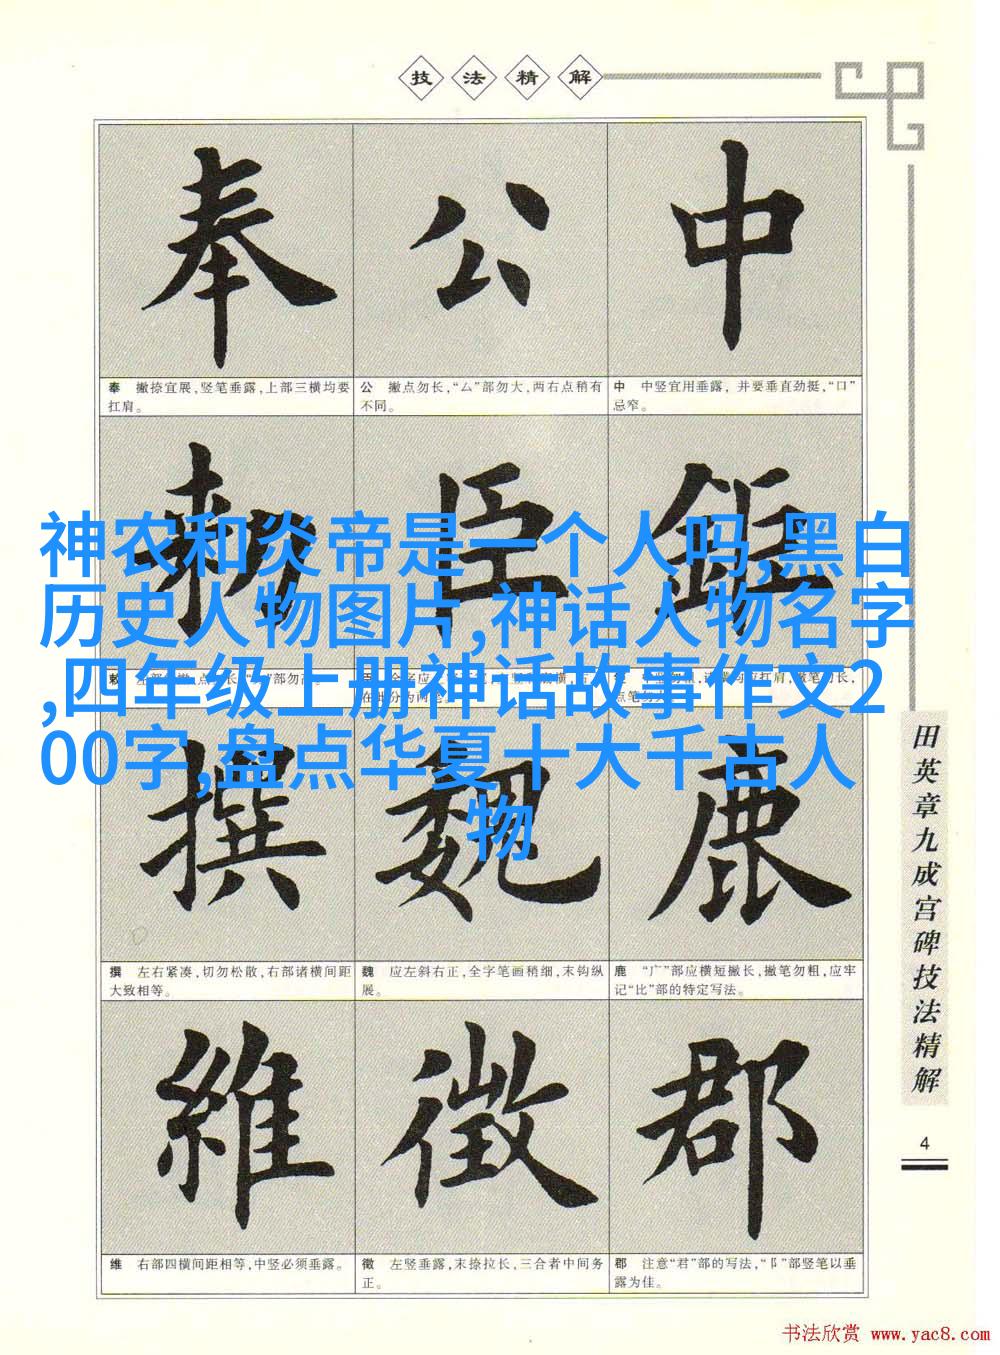 技法精解
奉 公 中
奉 撇捺宜展,竖笔垂露,上部三横均要
扛肩。
公 撇点勿长,“厶”部勿大,两右点稍有
不同。
中 中竖宜用垂露,并要垂直劲挺,“口”
忌窄。
勅 臣
神农和炎帝是一个人吗,黑白
历史人物图片,神话人物名字
,四年级上册神话故事作文2
00字,盘点华夏十大千古人
物
撰 魏 鹿
撰 左右紧凑,切勿松散,右部诸横间距
大致相等。
魏 应左斜右正,全字笔画稍细,末钩纵
展。
鹿 “广”部应横短撇长,撇笔勿粗,应牢
记“比”部的特定写法。
維 徵 郡
维 右部四横间距相等,中竖必须垂露。
徵 左竖垂露,末捺拉长,三合者中间务
正。
郡 注意“君”部的写法,“阝”部竖笔以垂
露为佳。
田英章九成宫碑技法精解
4
书法欣赏 www.yac8.com